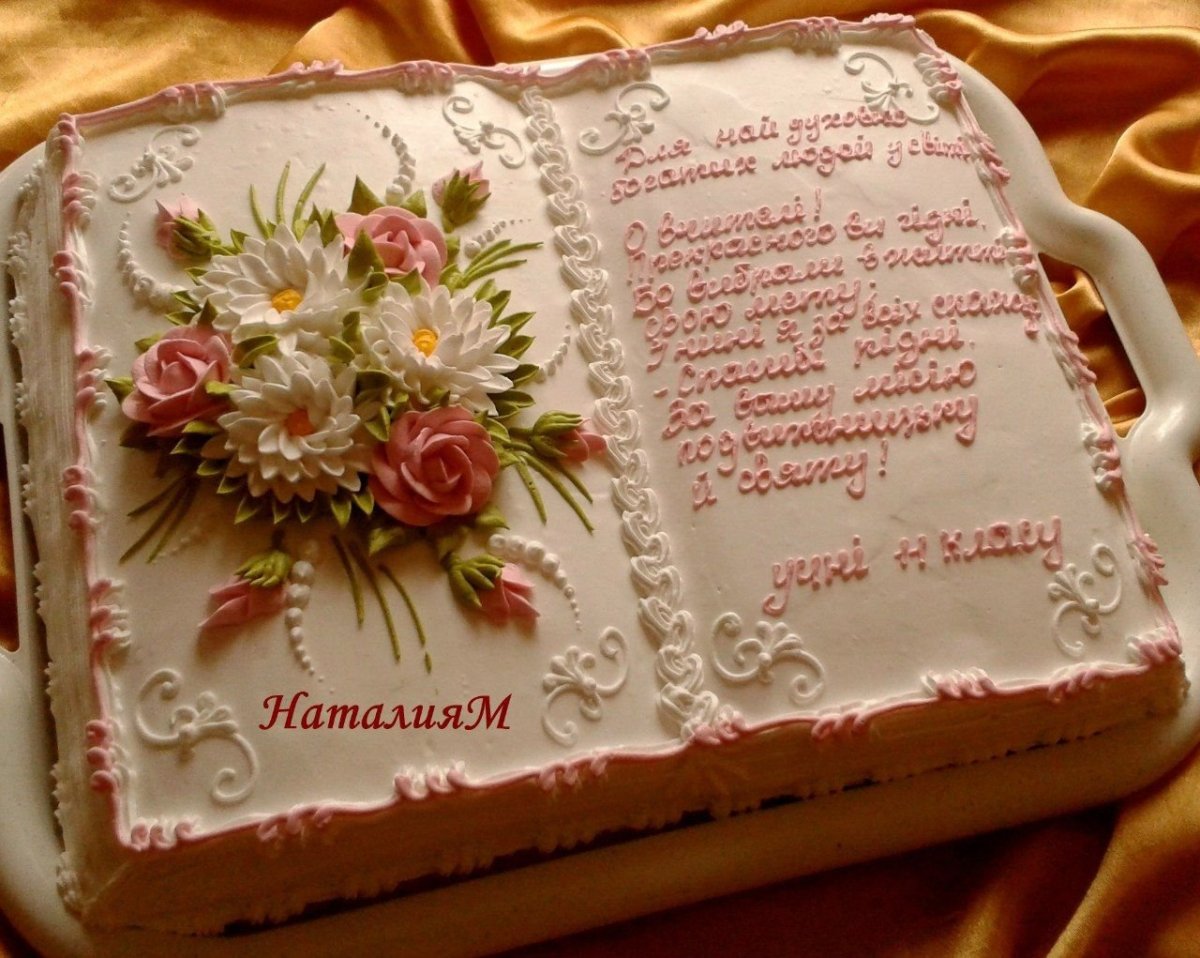 Для най духовно
багатих людей у світі
О вчителі!
Прекрасного ви гідні,
Бо вибрали в житті
свою мету
У нині я за всіх скажу
-Спасибі рідні,
За вашу місію
подвижницьку
й святу!
учні 11 класу
НаталияМ